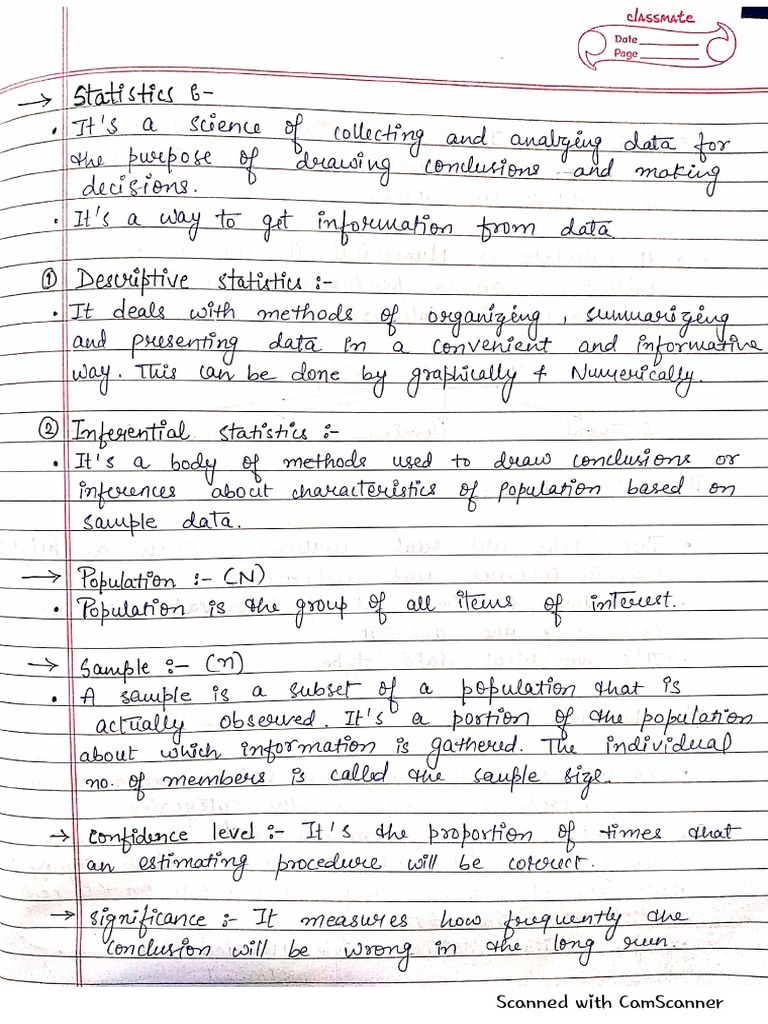 classmate
Date
Page
→ Statistics :-
• It's a science of collecting and analyzing data for
the purpose of drawing conclusions and making
decisions.
• It's a way to get information from data
① Descriptive statistics :-
• It deals with methods of organizing, summarizing
and presenting data in a convenient and informative
way. This can be done by graphically & Numerically.
② Inferential statistics :-
• It's a body of methods used to draw conclusions or
inferences about characteristics of population based on
sample data.
→ Population :- (N)
• Population is the group of all items of interest.
→ Sample :- (n)
• A sample is a subset of a population that is
actually observed. It's a portion of the population
about which information is gathered. The individual
no. of members is called the sample size.
→ Confidence level :- It's the proportion of times that
an estimating procedure will be correct.
→ Significance :- It measures how frequently the
conclusion will be wrong in the long run.
Scanned with CamScanner